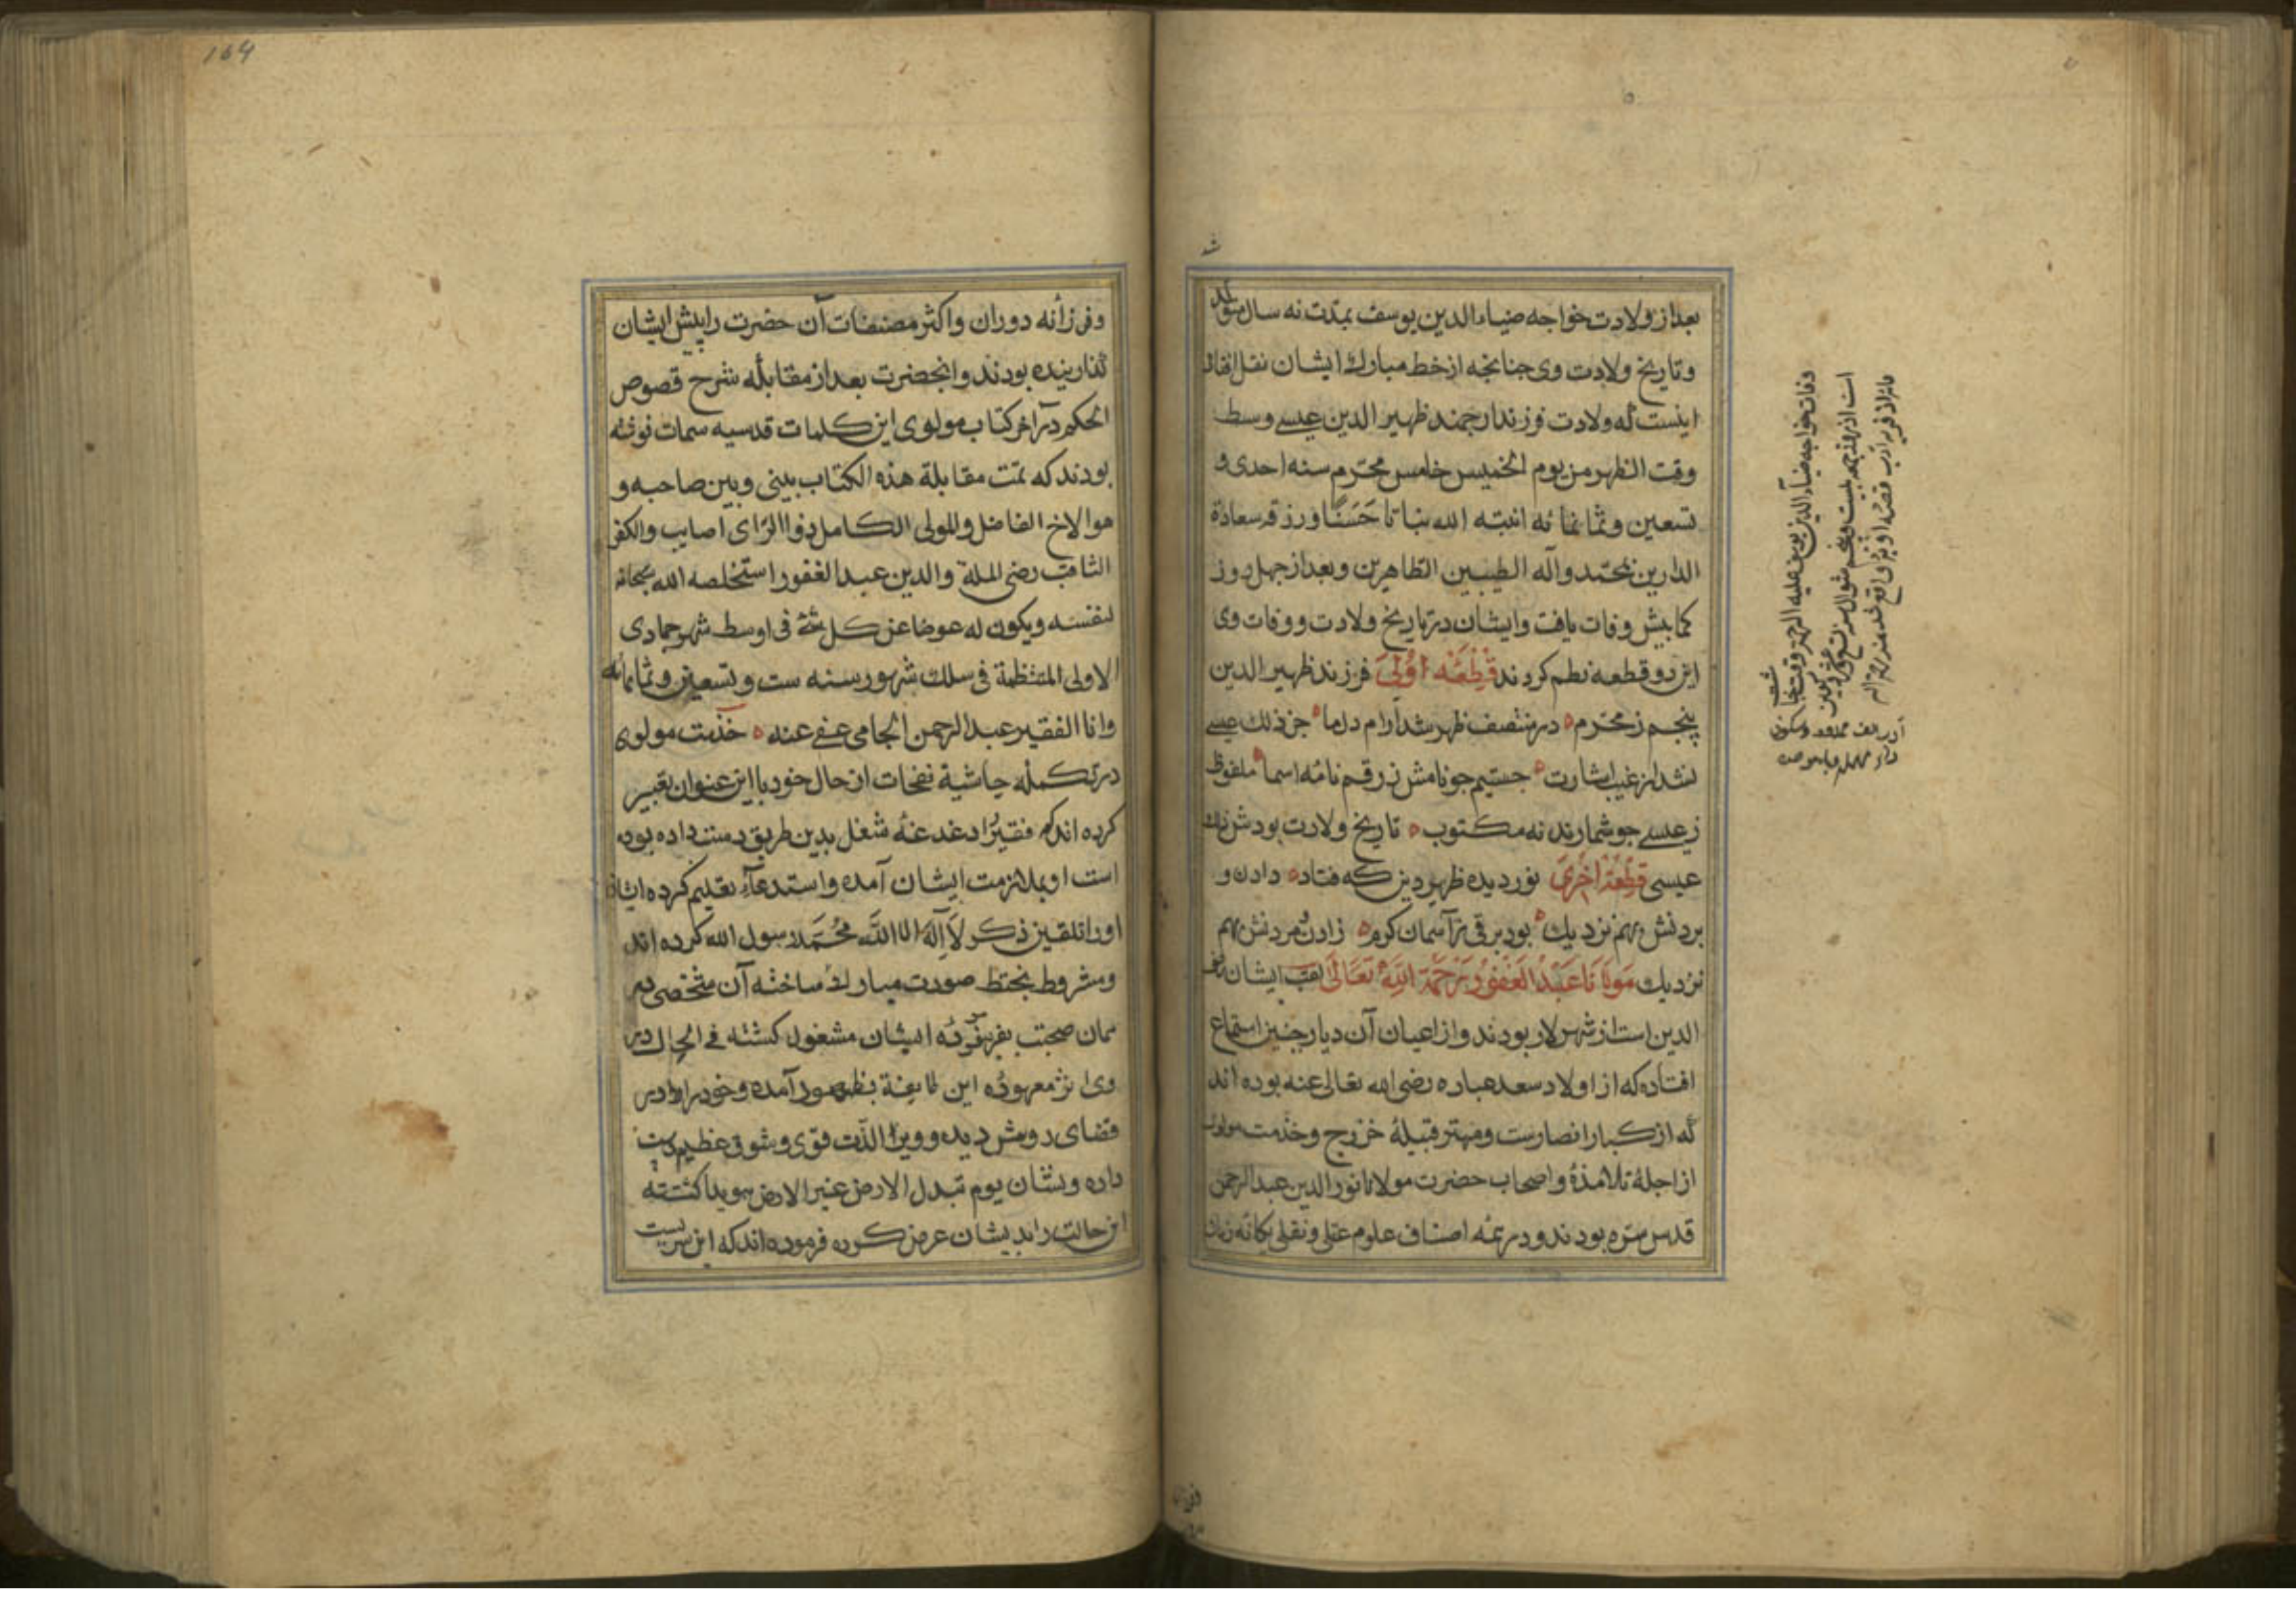 بعداز ولادت خواجه ضیاء الدین یوسف بمدت نه سال متولد
شد
وتاریخ ولادت وی جنانجه از خط مبارك ایشان نقل افتاد
اینست که ولادت فرزند ارجمند ظهیر الدین عیسی وسط
وقت الظهر من یوم الخمیس خامس محرم سنه احدی و
تسعین وثمانمائه انبته الله نباتا حَسَنًا ورزقه سعادة
الدارین بمحمد وآله الطیبین الطاهرین وبعداز جهل روز
کمابیش وفات یافت وایشان در تاریخ ولادت ووفات وی
این دو قطعه نظم کردند قطعه اولی فرزند ظهیر الدین
پنجم ز محرم در منتصف ظهر شد آرام دلما جز ذلك عیسی
نشد از غیب اشارت جستیم جو نامش ز رقم نامه اسما ملفوظ
ز عیسی جو شمارند نه مکتوب تاریخ ولادت بودش ذلك
عیسی قطعة اخری نور دیده ظهیر دین که فتاد دادن و
بردنش بهم نزدیك بود برقی ز آسمان کرم زادن ومردنش بهم
نزدیك مولانا عبد الغفور رحمة الله تعالی لقب ایشان رضی
الدین است از شهر لار بودند واز اعیان آن دیار جنین استماع
افتاده که از اولاد سعد عباده رضی الله تعالی عنه بوده اند
که از کبار انصارست ومهتر قبیلهٔ خزرج وخدمت مولوی
از اجلهٔ تلامذهٔ واصحاب حضرت مولانا نور الدین عبد الرحمن
قدس سره بودند ودر همه اصناف علوم عقلی ونقلی یکانه زمان
وفات خواجه ضیاء الدین یوسف علیه الرحمة وقت
وفرزانه دوران واکثر مصنفات آن حضرت را پیش ایشان
کذارینده بودند وانحضرت بعداز مقابله شرح فصوص
الحکم در آخر کتاب مولوی این کلمات قدسیه سمات نوشته
بودند که تمت مقابلة هذه الکتاب بینی وبین صاحبه و
هوالاخ الفاضل والمولی الکامل ذوا الرای اصایب والکفر
الثاقب رضی الملة والدین عبد الغفور استخلصه الله سبحانه
لنفسه ویکون له عوضا عن کل شئ فی اوسط شهر جمادی
الاولی المنتظمة فی سلك شهور سنه ست وتسعین وثمانمائه
وانا الفقیر عبد الرحمن الجامی عفی عنه خدمت مولوی
در تکمله حاشیة نفحات از حال خود با این عنوان تعبیر
کرده اند که فقیر را دغدغهٔ شغل بدین طریق دست داده بوده
است او بملازمت ایشان آمده واستدعاء تعلیم کرده ایشان
اورا تلقین ذکر لا اله الا الله محمد رسول الله کرده اند
ومشروط بحفظ صورت مبارك ساخته آن شخص در
همان صحبت بفرموده ایشان مشغول کشته فی الحال در
وی اثر معهوده این طایفة بظهور آمده وخود را در
فضای روشن دیده وویرا لذت قوی وشوقی عظیم دست
داده ونشان یوم تبدل الارض غیر الارض هویدا کشته
این حالت را بدیشان عرض کرده فرموده اند که این سریست